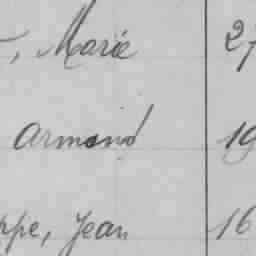 , Marie 27
Armand 19
ppe, Jean 16